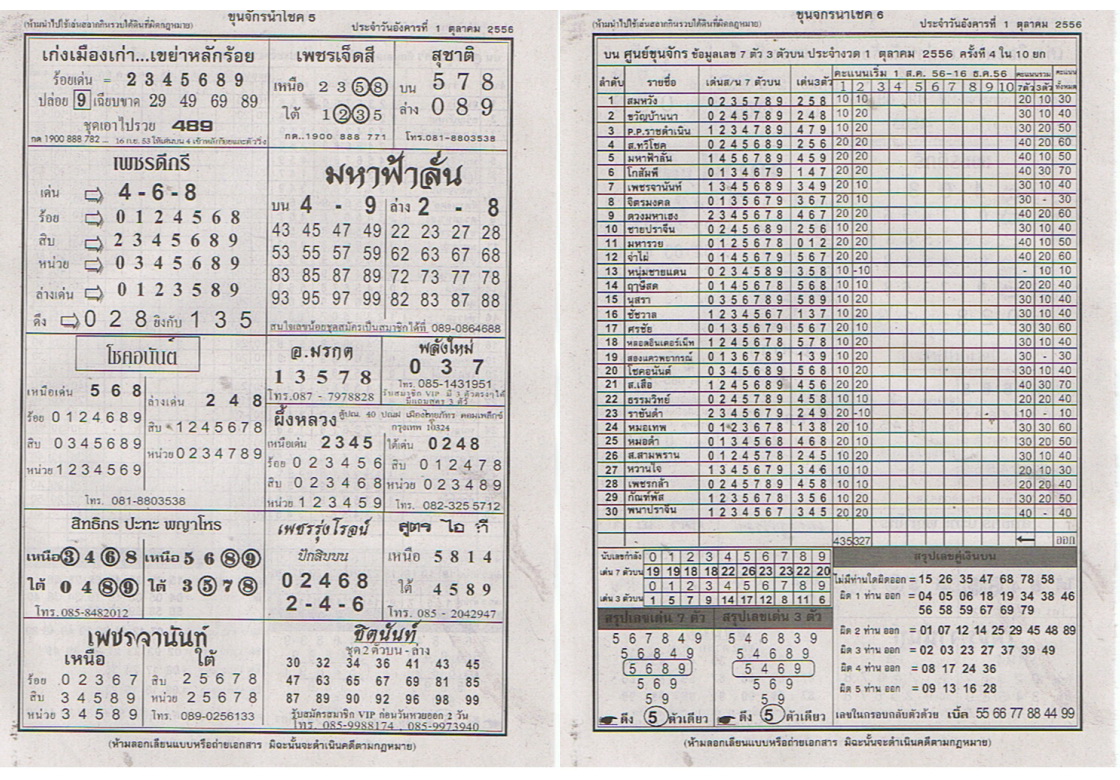 ขุนจักรนำโชค 5
(ห้ามนำไปใช้เล่นสลากกินรวบได้ผิดกฎหมาย)
ประจำวันอังคารที่ 1 ตุลาคม 2556
เก่งเมืองเก่า...เขย่าหลักร้อย
ร้อยเด่น = 2 3 4 5 6 8 9
ปล่อย 9 เฉียบขาด 29 49 69 89
ชุดเอาไปรวย 489
เพชรเจ็ดสี
เหนือ 2 3 5 8
ใต้ 1 2 3 5
กด..1900 888 771
สุชาติ
บน 5 7 8
ล่าง 0 8 9
โทร.081-8803538
เพชรดีกรี
เด่น 4 - 6 - 8
ร้อย 0 1 2 4 5 6 8
สิบ 2 3 4 5 6 8 9
หน่วย 0 3 4 5 6 8 9
ล่างเด่น 0 1 2 3 5 8 9
ดึง 0 2 8 ยิงกับ 1 3 5
มหาฟ้าลั่น
บน 4 - 9 ล่าง 2 - 8
43 45 47 49 22 23 27 28
53 55 57 59 62 63 67 68
83 85 87 89 72 73 77 78
93 95 97 99 82 83 87 88
สนใจเลขน้อยชุดสมัครเป็นสมาชิกได้ที่ 089-0864688
โชคอนันต์
เหนือเด่น 5 6 8
ร้อย 0 1 2 4 6 8 9
สิบ 0 3 4 5 6 8 9
หน่วย 1 2 3 4 5 6 9
ล่างเด่น 2 4 8
สิบ 1 2 4 5 6 7 8
หน่วย 0 2 3 4 7 8 9
โทร. 081-8803538
อ.มรกต
1 3 5 7 8
โทร.087 - 7978828
พลังใหม่
0 3 7
โทร. 085-1431951
ผึ้งหลวง
ตู้ปณ. 40 ปณฝ เมืองไทยภัทร คอมเพล็กซ์
กรุงเทพ 10324
เหนือเด่น 2 3 4 5 ใต้เด่น 0 2 4 8
ร้อย 0 2 3 4 5 6 สิบ 0 1 2 4 7 8
สิบ 0 2 3 4 6 8 หน่วย 0 2 3 4 8 9
หน่วย 1 2 3 4 5 9 โทร. 082-325 5712
สิทธิกร ปะทะ พญาโหร
เหนือ 3 4 6 8 เหนือ 5 6 8 9
ใต้ 0 4 8 9 ใต้ 3 5 7 8
โทร.085-8482012
เพชรรุ่งโรจน์
ปักสิบบน
0 2 4 6 8
2 - 4 - 6
เหนือ 5 8 1 4
ใต้ 4 5 8 9
โทร. 085 - 2042947
เพชรจานันท์
เหนือ ใต้
ร้อย 0 2 3 6 7 สิบ 2 5 6 7 8
สิบ 3 4 5 8 9 หน่วย 2 5 6 7 8
หน่วย 3 4 5 8 9 โทร. 089-0256133
ชิตนันท์
ชุด 2 ตัวบน - ล่าง
30 32 34 36 41 43 45
47 63 65 67 69 81 85
87 89 90 92 96 98 99
รับสมัครสมาชิก VIP ก่อนวันหวยออก 2 วัน
โทร. 085-9988174 , 085-9973940
(ห้ามลอกเลียนแบบหรือถ่ายเอกสาร มิฉะนั้นจะดำเนินคดีตามกฎหมาย)
ขุนจักรนำโชค 6
(ห้ามนำไปใช้เล่นสลากกินรวบได้ผิดกฎหมาย)
ประจำวันอังคารที่ 1 ตุลาคม 2556
บน ศูนย์ขุนจักร ข้อมูลเลข 7 ตัว 3 ตัวบน ประจำงวด 1 ตุลาคม 2556 ครั้งที่ 4 ใน 10 ยก
ลำดับ รายชื่อ เด่นส/น 7 ตัวบน เด่น3ตัว คะแนนเริ่ม 1 ส.ค. 56-16 ธ.ค.56 คะแนนรวม คะแนนทั้งหมด
1 2 3 4 5 6 7 8 9 10 7ตัว 3ตัว
1 สมหวัง 0 2 3 5 7 8 9 2 5 8 10 10 20 10 30
2 ขวัญบ้านนา 0 2 4 5 7 8 9 2 4 8 10 20 30 10 40
3 P.P.ราชดำเนิน 1 2 3 4 7 8 9 4 7 9 10 20 30 20 50
4 ส.ทวีโชค 0 2 4 5 6 8 9 2 5 6 20 20 40 20 60
5 มหาฟ้าลั่น 1 4 5 6 7 8 9 4 5 9 20 20 40 10 50
6 โกสัมพี 0 1 3 4 6 7 9 1 4 7 20 20 40 30 70
7 เพชรจานันท์ 1 3 4 5 6 8 9 3 4 9 20 10 30 10 40
8 จิตรมงคล 0 1 3 5 6 7 9 3 6 7 20 10 30 - 30
9 ดวงมหาเฮง 2 3 4 5 6 7 8 4 6 7 20 20 40 20 60
10 ชายปราจีน 0 2 4 5 6 8 9 2 5 6 10 20 30 10 40
11 มหารวย 0 1 2 5 6 7 8 0 1 2 20 20 40 10 50
12 จ่าไม่ 0 1 4 5 6 7 9 5 6 7 20 20 40 20 60
13 หนุ่มชายแดน 0 2 3 4 5 8 9 3 5 8 10 -10 - 10 10
14 ฤาษีสด 0 1 4 5 6 7 8 5 6 8 20 10 20 20 40
15 นุสรา 0 3 5 6 7 8 9 5 8 9 10 20 30 10 40
16 ชัชวาล 1 2 3 4 5 6 7 1 3 7 10 20 30 10 40
17 ศรชัย 0 1 3 5 6 7 9 5 6 7 20 10 30 30 60
18 หลอลอินเตอร์เน็ท 1 2 4 5 6 7 8 5 7 8 10 20 30 10 40
19 สองแควพยากรณ์ 0 1 3 6 7 8 9 1 3 9 20 10 30 - 30
20 โชคอนันต์ 0 3 4 5 6 8 9 5 6 8 10 20 30 10 40
21 ส.เสือ 1 2 4 5 6 8 9 4 5 6 20 20 40 30 70
22 ธรรมวิทย์ 0 1 2 4 5 7 8 4 5 8 20 10 20 20 40
23 ราชันดำ 2 3 4 5 6 7 9 2 4 9 20 -10 10 - 10
24 หมอเทพ 0 1 2 3 6 7 8 1 3 8 20 10 30 30 60
25 หมอดำ 0 1 3 4 5 6 8 4 6 8 10 20 30 20 50
26 ส.สามพราน 0 1 2 4 5 7 8 2 4 5 10 20 30 10 40
27 หวานใจ 1 3 4 5 6 7 9 3 4 6 10 10 20 10 30
28 เพชรกล้า 0 2 4 5 7 8 9 4 5 8 10 10 20 20 40
29 กัณฑ์พัส 1 2 3 5 6 7 8 3 5 6 10 20 30 20 50
30 พนาปราจีน 1 2 3 4 5 6 7 3 4 5 20 20 40 - 40
435 327 ออก
นับเลขกำลัง 0 1 2 3 4 5 6 7 8 9
เด่น 7 ตัวบน 19 19 18 18 22 26 23 23 22 20
0 1 2 3 4 5 6 7 8 9
เด่น 3 ตัวบน 1 5 7 9 14 17 12 8 11 6
สรุปเลขเด่น 7 ตัว สรุปเลขเด่น 3 ตัว
5 6 7 8 4 9 5 4 6 8 3 9
5 6 8 4 9 5 4 6 8 9
5 6 8 9 5 4 6 9
5 6 9 5 6 9
5 9 5 9
ดึง 5 ตัวเดียว ดึง 5 ตัวเดียว
สรุปเลขคู่เงินบน
ไม่มีท่านใดผิดออก = 15 26 35 47 68 78 58
ผิด 1 ท่าน ออก = 04 05 06 18 19 34 38 46
56 58 59 67 69 79
ผิด 2 ท่าน ออก = 01 07 12 14 25 29 45 48 89
ผิด 3 ท่าน ออก = 02 03 23 27 37 39 49
ผิด 4 ท่าน ออก = 08 17 24 36
ผิด 5 ท่าน ออก = 09 13 16 28
เลขในกรอบกลับตัวด้วย เบิ้ล 55 66 77 88 44 99
(ห้ามลอกเลียนแบบหรือถ่ายเอกสาร มิฉะนั้นจะดำเนินคดีตามกฎหมาย)